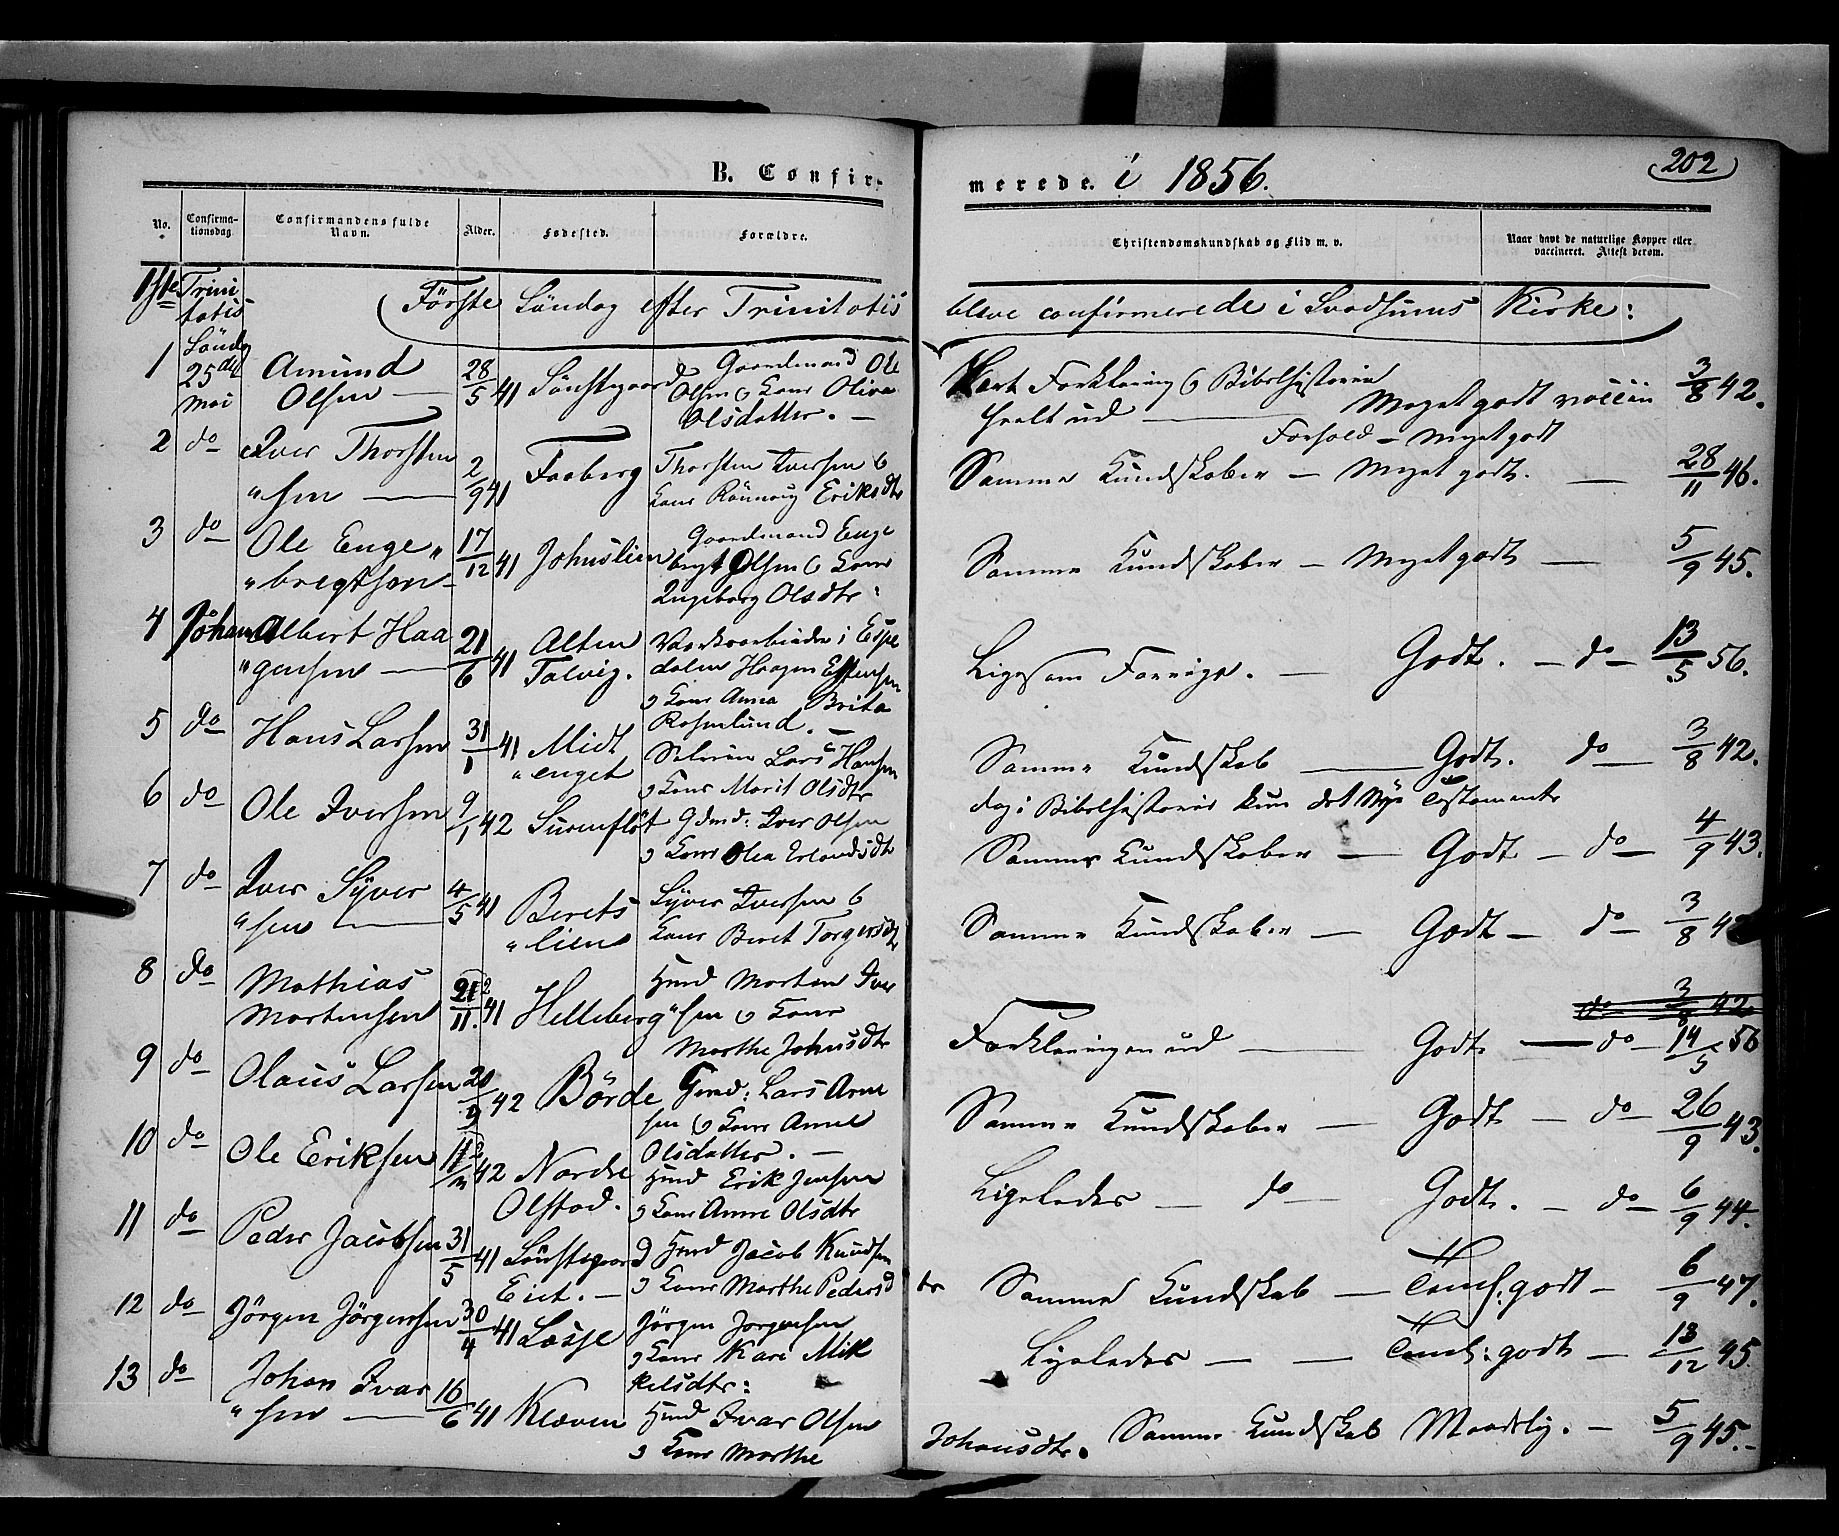 202
B. Confir-
merede. i 1856.
No.
Confirma-
tionsdag.
Confirmandens fulde
Navn.
Alder.
Fødested.
Forældre.
Christendomskundskab og Flid m. v.
Naar havt de naturlige Kopper eller
vaccineret. Attest derom.
1ste Trini
tatis
Første Søndag efter Trinitatis
bleve confirmerede i Svadsums Kirke:
1 Søndag
25de
Mai
Amund
Olsen 28/5 41
Gaardmand Ole
Olsen & Kone Oliva
Olsdatter.
Forklaring & Bibelhistorien
heelt ud Meget godt vaccin 3/8 42.
Forhold - meget godt
2 do Iver Thorsten
"sen 2/9 41 Faaberg
Thorsten Iversen &
Kone Rønnaug Eriksdtr
Samme Kundskaber - Meget godt. 28/11 46.
3 do Ole Enge"
"bregtsen 17/12 41 Johnslien
Gaardmand Enge
bregt Olsen & Kone
Ingeborg Olsdtr:
Samme Kundskaber - Meget godt 5/9 45.
4 Johan Albert Haa
"gensen 21/6 41 Alten
Talvig.
Værksarbeider i Espe
dalen Haagen Estensen
& Kone Anna Brita
Rosenlund.
Ligesom Forrige. Godt. - do - 13/5 56.
5 do Hans Larsen 31/1 41 Midt
"enget
Lars Hansen
& Kone Marit Olsdtr
Samme Kundskab Godt. do 3/8 42.
dog i Bibelhistorie kun det Nye Testamente
6 do Ole Iversen 9/1 42
Gdmd: Iver Olsen
& Kone Olea Erlandsdtr
Samme Kundskaber - Godt - do 4/9 43.
7 do Iver Syver
"sen 4/5 41 Berets
"lien
Syver Iversen &
Kone Beret Torgersdtr
Samme Kundskaber - Godt - do 3/8 42
8 do Mathias
Mortensen 21/11 41 Helleberg
Hmd Morten Iver
"sen & Kone
Marthe Johnsdtr
do 3/8 42
Forklaringen ud Godt do - 14/5 56
9 do Olaus Larsen 42 Börde
Gmd: Lars Arne
sen & Kone Anne
Olsdatter.
Samme Kundskaber - Godt - do 26/9 43.
10 do Ole Eriksen 42 Nordre
Olstad.
Hmd Erik Jensen
& Kone Anne Olsdtr
Ligeledes - do - Godt. - do 6/9 44.
11 do Peder Jacobsen 31/5 41
Eiet.
Hmd Jacob Knudsen
& Kone Marthe Pedersd
tr Samme Kundskab - Teml: godt - 6/9 47.
12 do Jörgen Jörgensen 30/4 41
Jörgen Jorgensen
& Kone Kari Mik
kelsdtr:
Ligeledes - - Teml: godt - 13/12 45.
13 do Johan Ivar
"sen 16/6 41 Kleven
Hmd Ivar Olsen
& Kone Marthe
Johansdtr. Samme Kundskab Maadelig. - 5/9 45.-